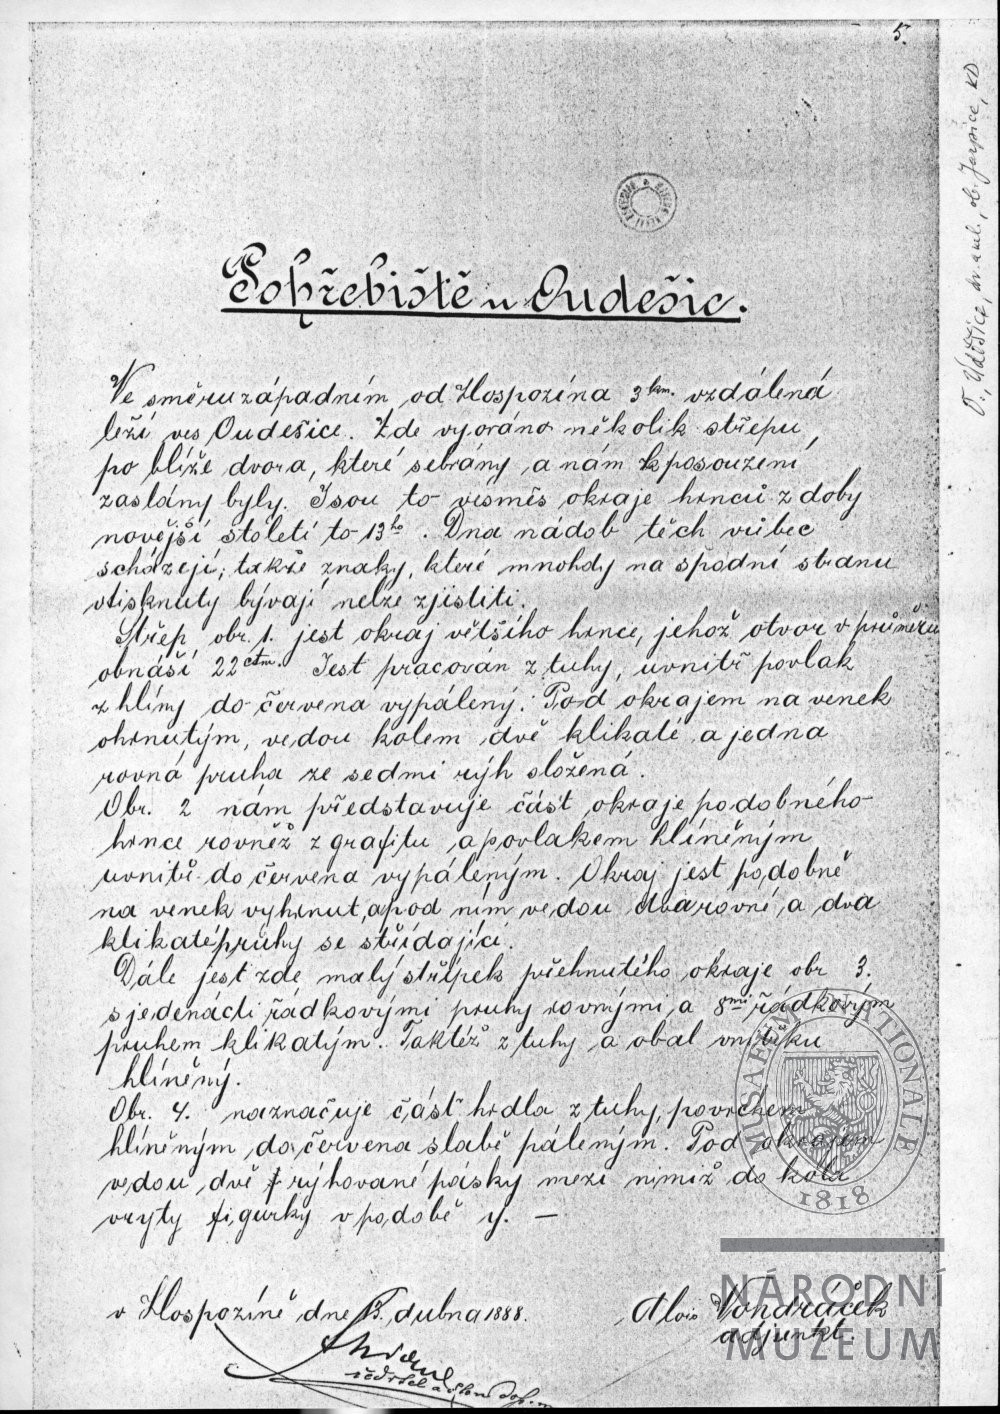 5.
O., Uděšice, obec Jarpice, KD
Pohřebiště u Oudešic.
Ve směru západním od Hospozína 3 km. vzdálená
leží ves Oudešice. Zde vyoráno několik střepu
po blíže dvora, které sebrány a nám k posouzení
zaslány byly. Jsou to vesměs okraje hrnců z doby
novější století to 13ho. Dna nádob těch vůbec
scházejí; takže znaky, které mnohdy na spodní stranu
otisknuty bývají nelze zjistiti.
Střep obr. 1. jest okraj většího hrnce, jehož otvor v průměru
obnáší 22 ctm. Jest pracován z tuhy, uvnitř povlak
z hlíny do červena vypálený. Pod okrajem na venek
ohrnutým, vedou kolem dvě klikaté a jedna
rovná pruha ze sedmi rýh složená.
Obr. 2 nám představuje část okraje podobného
hrnce rovněž z grafitu a povlakem hlíněným
uvnitř do červena vypáleným. Okraj jest podobně
na venek vyhrnut, a pod ním vedou dva rovné, a dva
klikaté pruhy se střídající.
Dále jest zde malý střípek přehnutého okraje obr 3.
s jedenácti řádkovými pruhy rovnými, a 8mi řádkovým
pruhem klikatým. Taktéž z tuhy a obal vnitřku
hlíněný.
Obr. 4. naznačuje část hrdla z tuhy, povrchem
hlíněným do červena slabě páleným. Pod okrajem
vedou dvě rýhované pásky mezi nimiž do kola
vryty figurky v podobě y. —
v Hospozíně dne 13. dubna 1888.
Alois Vondráček
adjunkt.
MUSAEUM NATIONALE
1818
NÁRODNÍ
MUZEUM